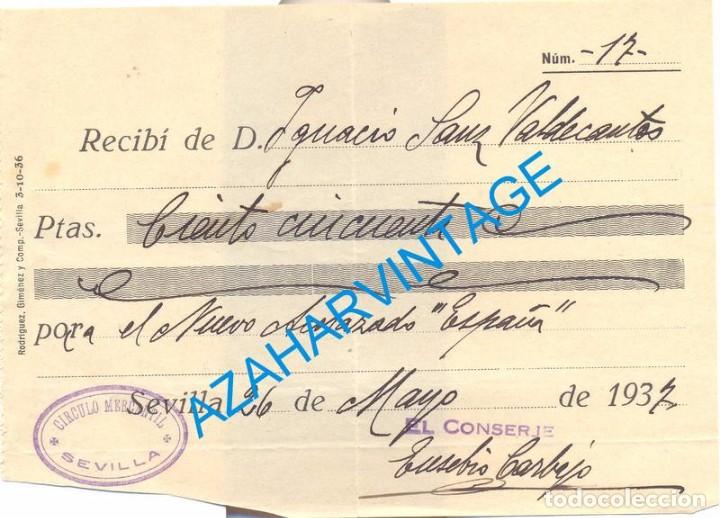 Núm. -17-
Recibí de D. Ignacio Sanz Valdecantos
Ptas. Ciento cincuenta
para el Nuevo Acorazado "España"
Sevilla 26 de Mayo de 1937
CIRCULO MERCANTIL
SEVILLA
EL CONSERJE
Eusebio Carbajo
Rodríguez, Giménez y Comp.-Sevilla 3-10-36
AZAHARVINTAGE
todocoleccion